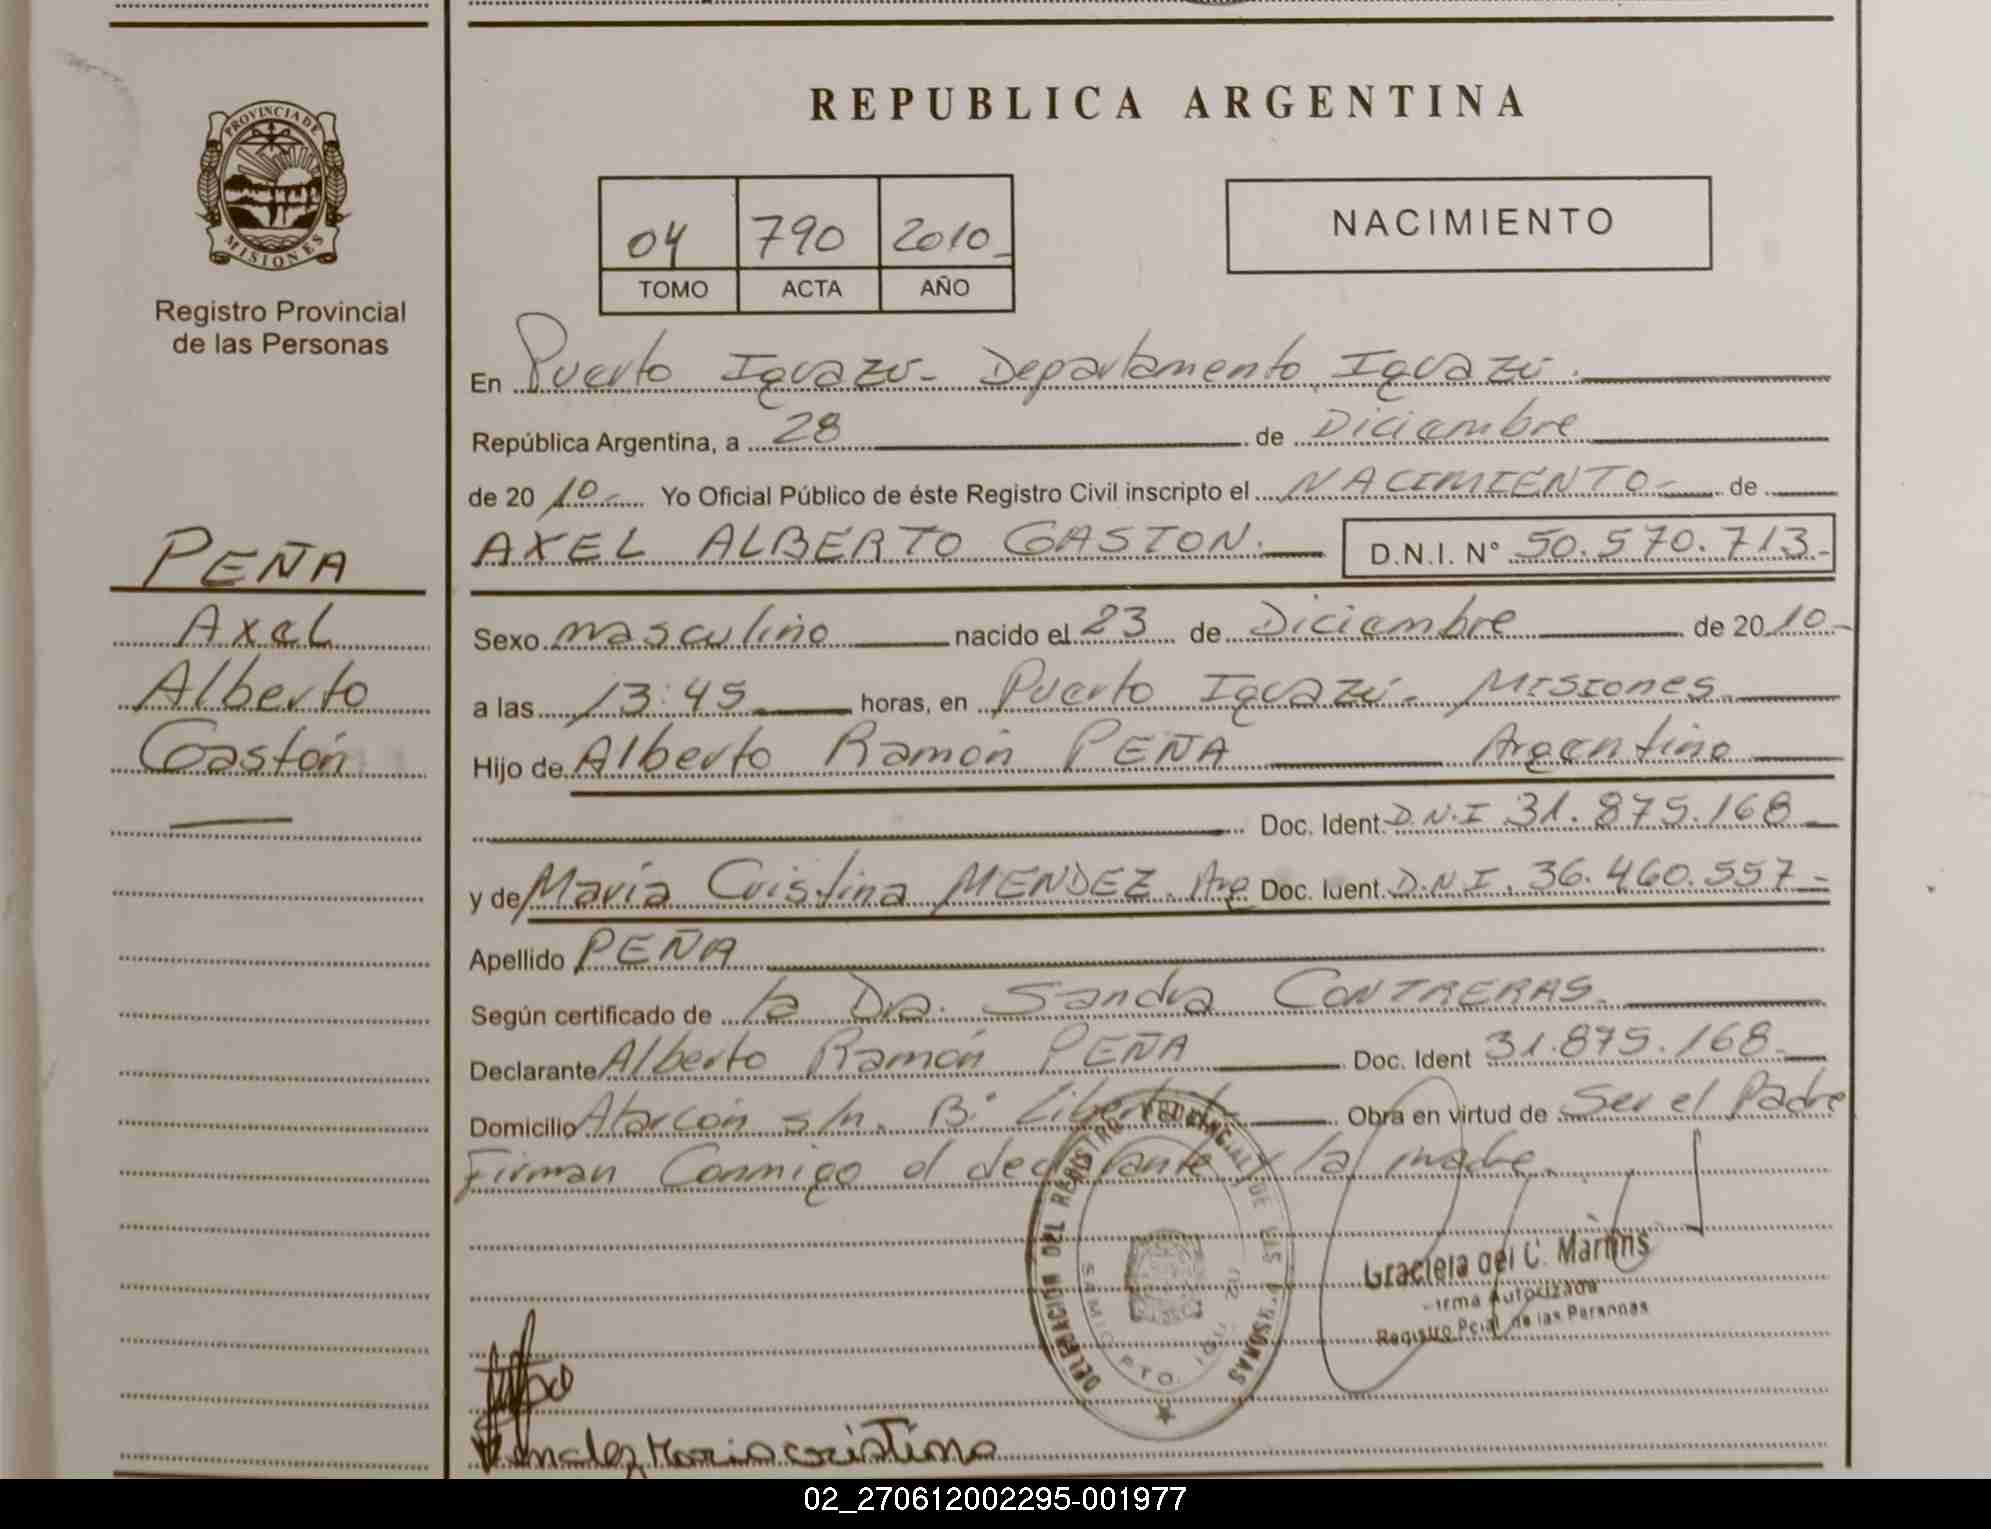 REPUBLICA ARGENTINA
PROVINCIA DE
MISIONES
Registro Provincial
de las Personas
04 790 2010
TOMO ACTA AÑO
NACIMIENTO
En Puerto Iguazú - Departamento Iguazú.
República Argentina, a 28 de Diciembre
de 20 10 - Yo Oficial Público de éste Registro Civil inscripto el NACIMIENTO - de
AXEL ALBERTO GASTON. D.N.I. N° 50.570.713 -
PEÑA
Axel
Alberto
Gastón
Sexo masculino nacido el 23 de Diciembre de 20 10 -
a las 13:45 horas, en Puerto Iguazú - Misiones
Hijo de Alberto Ramón PEÑA Argentino
Doc. Ident. D.N.I 31.875.168
y de María Cristina MENDEZ. Arg Doc. Ident. D.N.I. 36.460.557 -
Apellido PEÑA
Según certificado de la Dra. Sandra CONTRERAS.
Declarante Alberto Ramón PEÑA Doc. Ident 31.875.168 -
Domicilio Alarcón s/n. B° Libertad Obra en virtud de Ser el Padre
Firman Conmigo el declarante y la madre.
DELEGACION DEL REGISTRO PROVINCIAL DE LAS PERSONAS
PTO. IGUAZU
Graciela del C. Martins
Firma Autorizada
Registro Pcial. de las Personas
Mendez Maria cristina
02_270612002295-001977